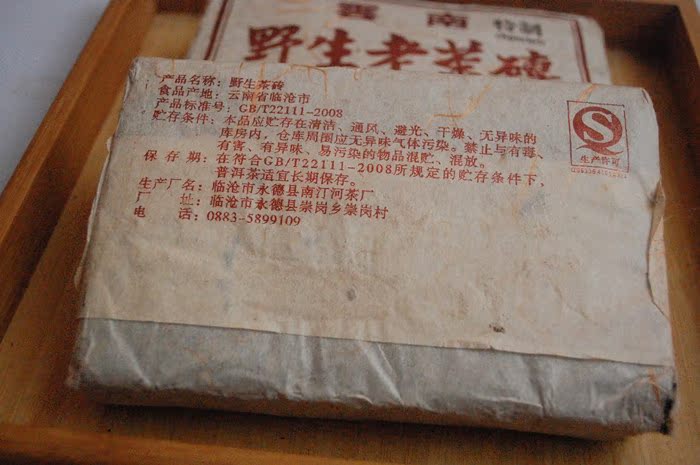 雲南
特制
野生老茶磚
产品名称：野生茶砖
食品产地：云南省临沧市
产品标准号：GB/T22111-2008
贮存条件：本品应贮存在清洁、通风、避光、干燥、无异味的
库房内，仓库周围应无异味气体污染。禁止与有毒、
有害、有异味、易污染的物品混贮、混放。
保存期：在符合GB/T22111-2008所规定的贮存条件下，
普洱茶适宜长期保存。
生产厂名：临沧市永德县南汀河茶厂
厂址：临沧市永德县崇岗乡崇岗村
电话：0883-5899109
生产许可